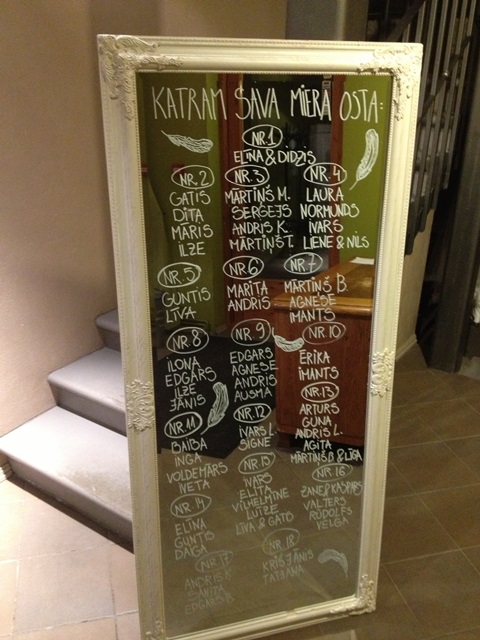 KATRAM SAVA MIERA OSTA:
NR.1
ELĪNA & DIDZIS
NR.2
GATIS
DITA
MĀRIS
ILZE
NR.3
MĀRTIŅŠ M.
SERGEJS
ANDRIS K.
MĀRTIŅŠ T.
NR.4
LAURA
NORMUNDS
IVARS
LIENE & NILS
NR.5
GUNTIS
LĪVA
NR.6
MARITA
ANDRIS
NR.7
MĀRTIŅŠ B.
AGNESE
IMANTS
NR.8
ILONA
EDGARS
ILZE
JĀNIS
NR.9
EDGARS
AGNESE
ANDRIS
AUSMA
NR.10
ĒRIKA
IMANTS
NR.11
BAIBA
INGA
VOLDEMĀRS
IVETA
NR.12
IVARS L.
SIGNE
NR.13
ARTURS
GUNA
ANDRIS L.
AGITA
MĀRTIŅŠ B & LĪGA
NR.14
ELĪNA
GUNTIS
DAIGA
NR.15
IVARS
ELITA
VILHELMĪNE
LUĪZE
LĪVA & GATO
NR.16
ZANE & KASPARS
VALTERS
RŪDOLFS
VELGA
NR.17
ANDRIS
SANITA
EDGARS
NR.18
KRIŠJĀNIS
TATJANA